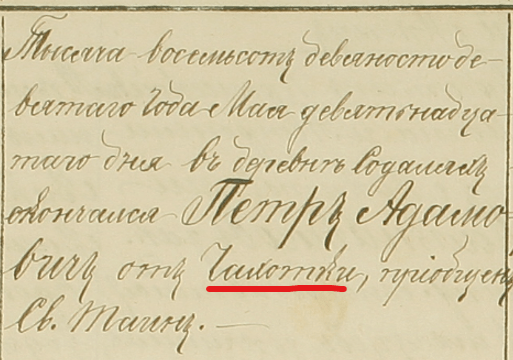 Тысяча восемьсотъ девяносто де-
вятаго года Мая девятьнадца-
таго дня въ деревнѣ Содаляхъ
окончался Петръ Адамо-
вичъ отъ Чахотки, пріобщенъ
Св. Таинъ. —